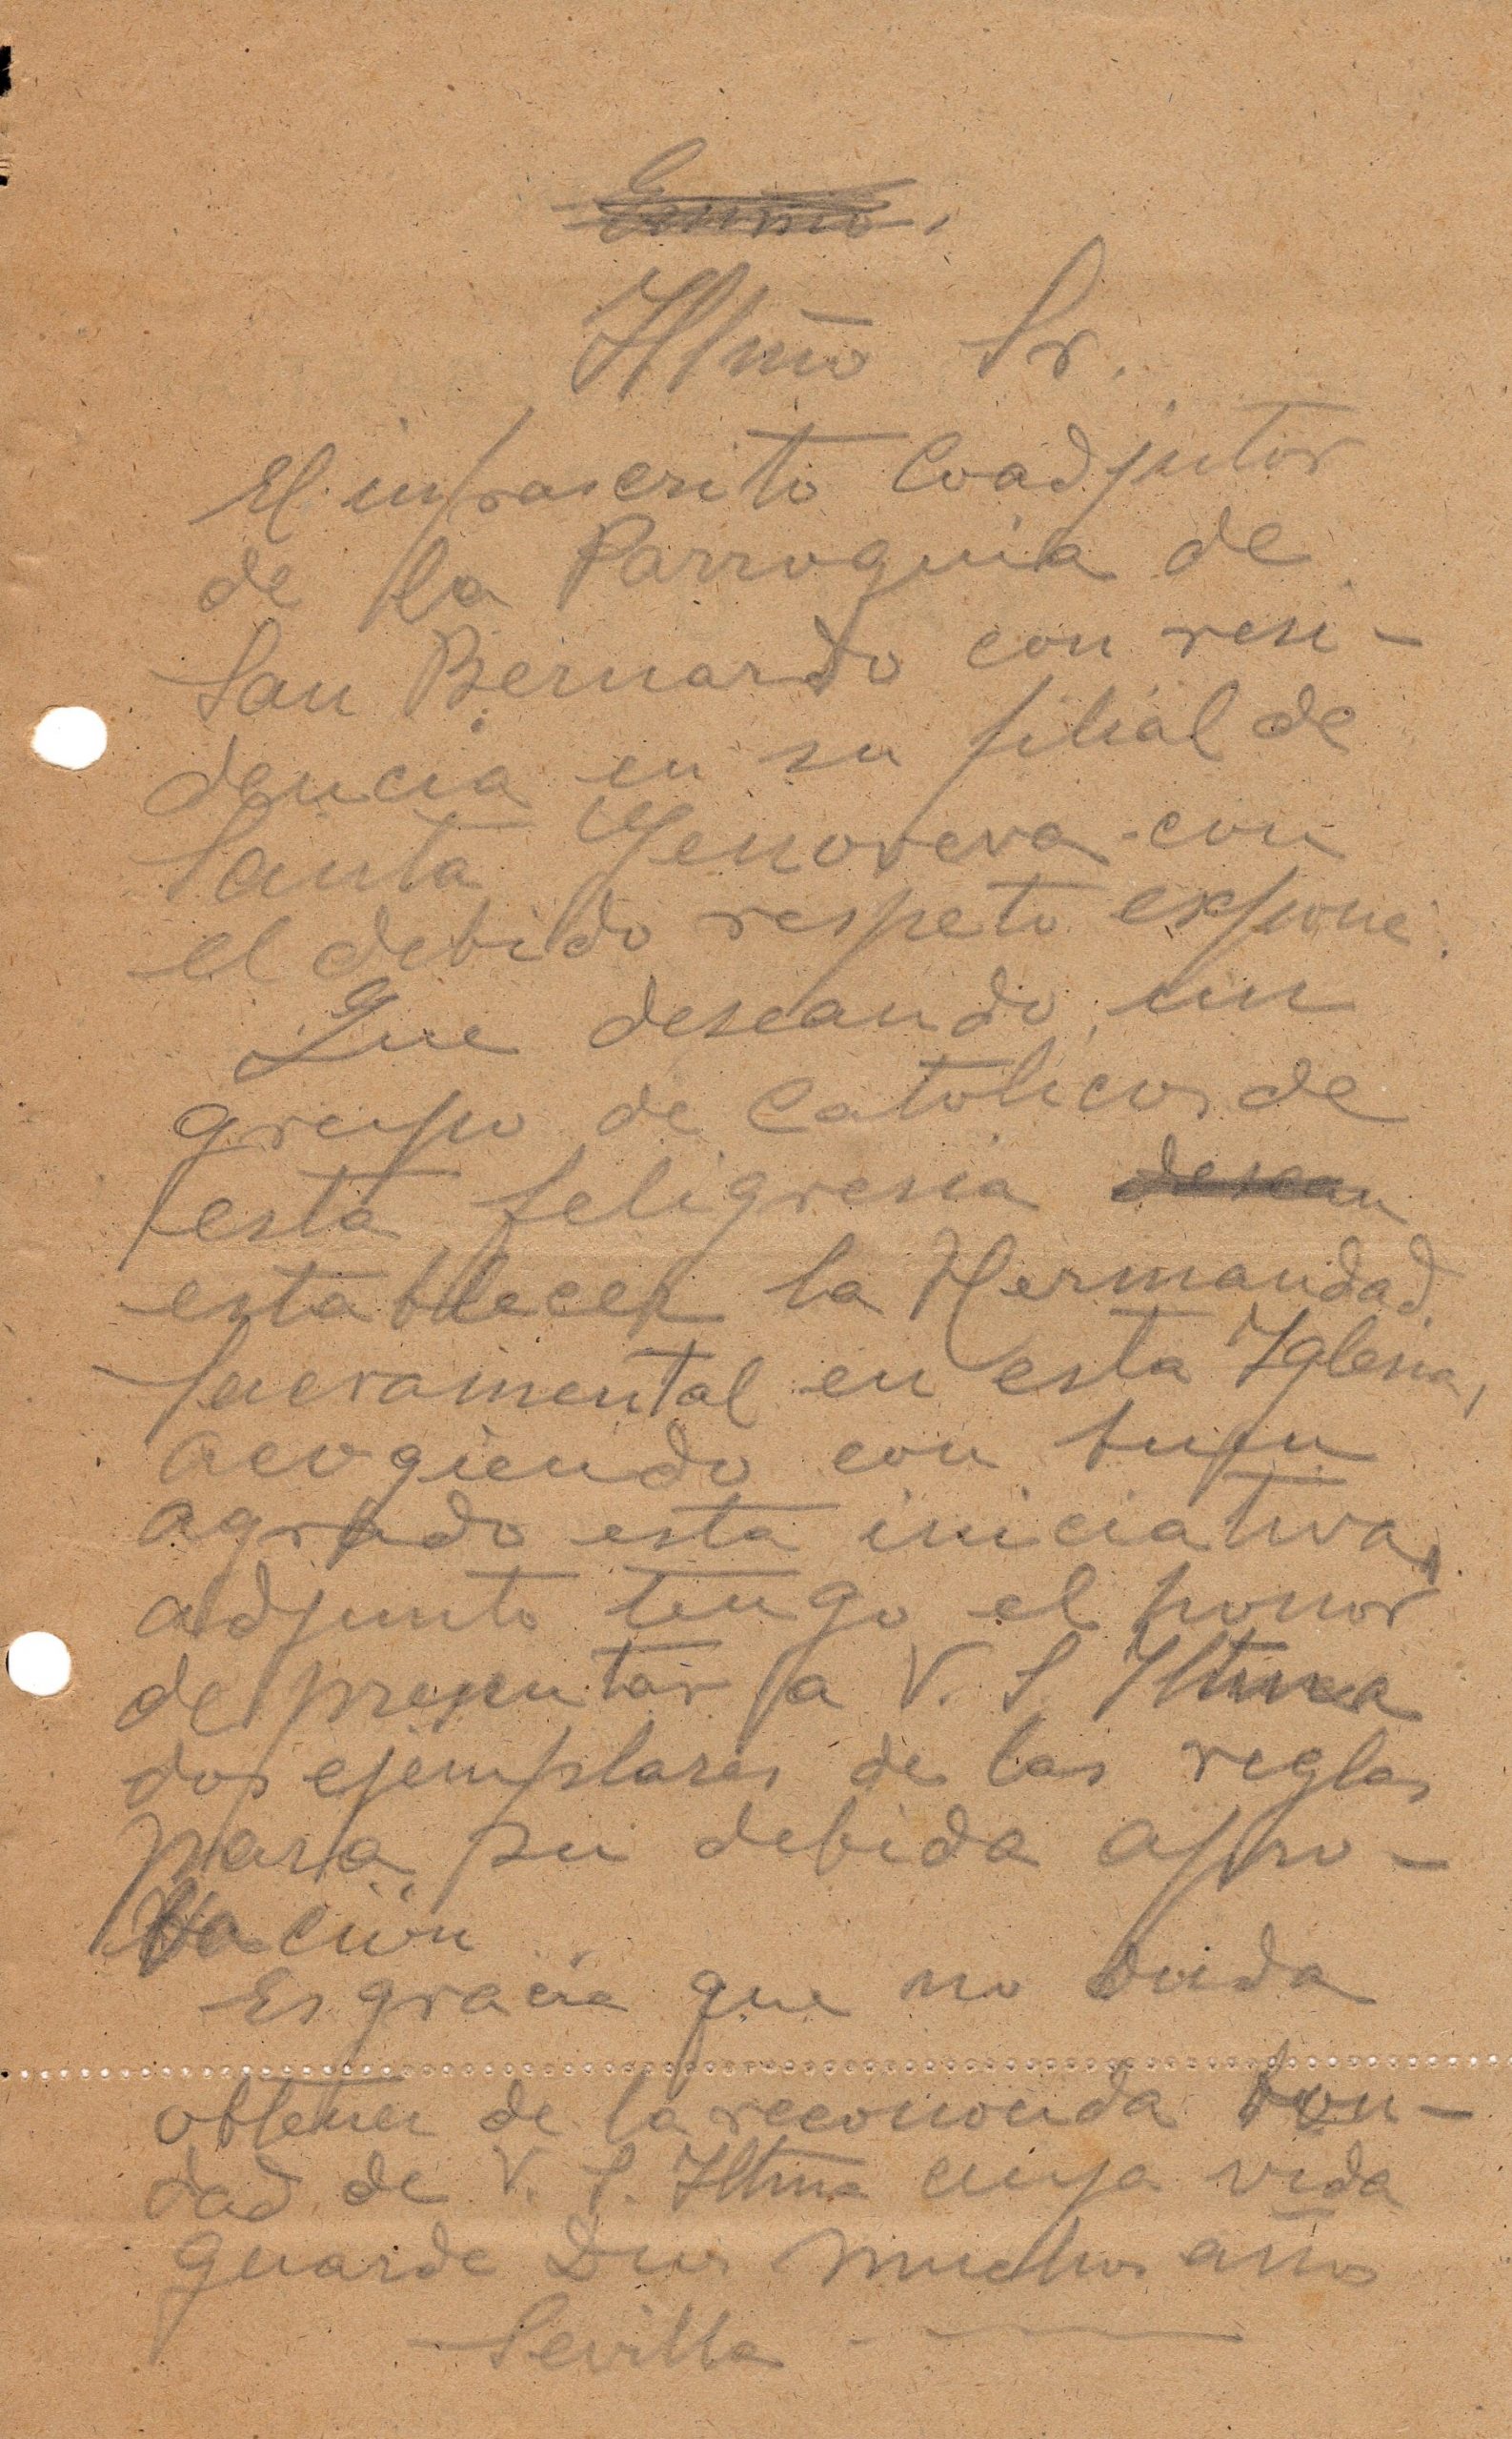 Ilmo Sr.
El infrascrito Coadjutor
de la Parroquia de
San Bernardo con resi-
dencia en su filial de
Santa Genoveva con
el debido respeto expone.
Que deseando un
grupo de Catolicos de
esta feligresia desean
establecer la Hermandad
Sacramental en esta Iglesia,
acogiendo con sumo
agrado esta iniciativa,
adjunto tengo el honor
de presentar a V. S. Iltma
dos ejemplares de las reglas
para su debida apro-
bación
Es gracia que no duda
obtener de la reconocida bon-
dad de V. S. Iltma cuya vida
guarde Dios muchos años
Sevilla